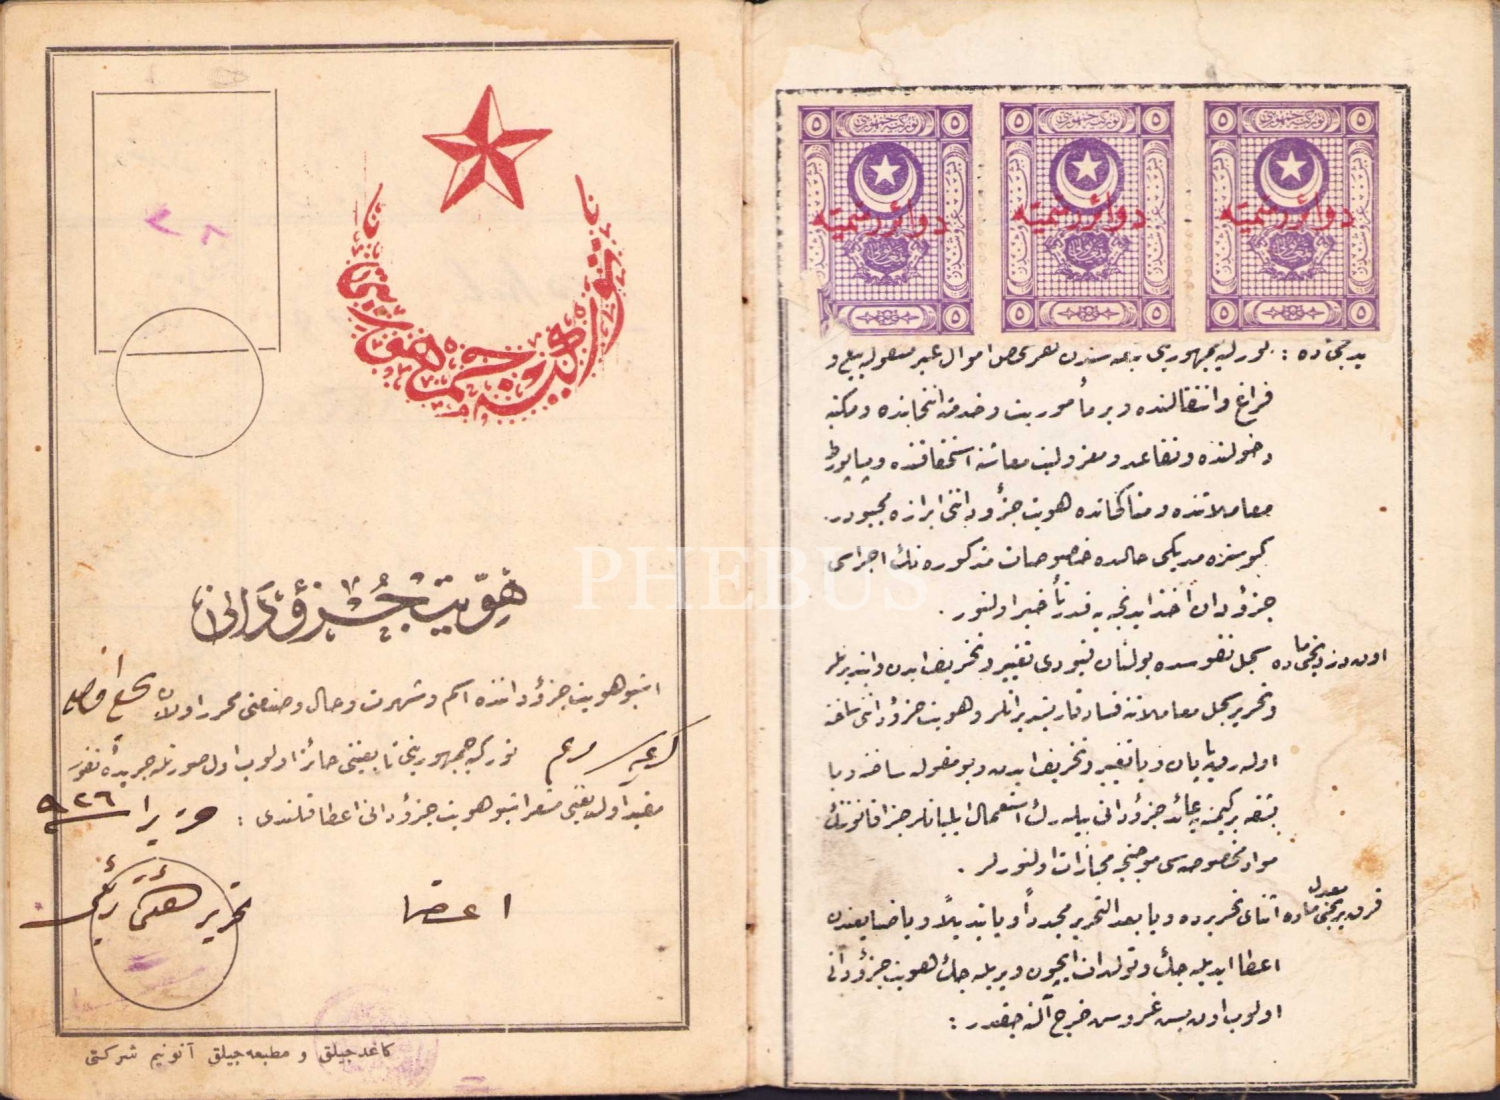 توركیه جمهوریتی
هویت جزؤدانی
اشبو هویت جزؤداننده اسم و شهرت و حال و صنعتی محرر اولان
توركیه جمهوریتی تابعیتنی حائز اولوب اول صورتله جریدهٔ نفوسه
مقید اولدیغنی مشعر اشبو هویت جزؤدانی اعطا قلندی :
٩٢٦
اعضا
تحریر هیئتی رئیسی
كاغدجیلق و مطبعه‌جیلق آنونیم شركتی
توركیه جمهوریتی توركیه جمهوریتی توركیه جمهوریتی
٥ ٥ ٥ ٥ ٥ ٥
دوائر رسمیه دوائر رسمیه دوائر رسمیه
٥ ٥ ٥ ٥ ٥
PHEBUS
یدنجی ماده : توركیه جمهوریتی تبعه سندن هر شخص اموال غیر منقوله بیع و
فراغ و انتقالنده و بر مأموریت و خدمته انتخابنده و مكتبه
دخولنده و تقاعد و معزولیت معاشنه استحقاقنده و پاساپورط
معاملاتنده و مناكحاتده هویت جزؤداننی ابرازه مجبوردر.
كوستره مدیكی حالده خصوصات مذكوره نك اجراسی
جزؤدان اخذ ایدنجه یه قدر تأخیر اولنور.
اون دردنجی ماده سجل نفوسده بولنان قیودی تغییر و تحریف ایدن و ایتدیرنلر
و تحریر سجل معاملاتنه فساد قاریشدیرانلر و هویت جزؤداننی ساخته
اوله رق یاپان و یا تغییر و تحریف ایدن و بو مقوله ساخته و یا
بشقه بر كیمسه یه عائد جزؤدانی بیله رك استعمال ایلیانلر جزا قانوننك
مواد مخصوصه سی موجبنجه مجازات اولنورلر.
قرق برنجی معدل ماده اثنای تحریرده و یا بعد التحریر مجدداً و یا تبدیلاً و یا ضایعندن
اعطا ایدیله جك و تولدات ایچون ویریله جك هویت جزؤدانی
اولوب اون بش غروش خرج آلنه جقدر :